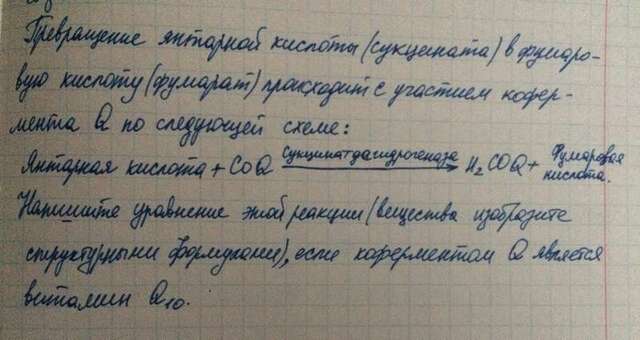 Превращение янтарной кислоты (сукцината) в фумаро-
вую кислоту (фумарат) происходит с участием кофер-
мента Q по следующей схеме:
Янтарная кислота + CoQ Сукцинатдегидрогеназа → H₂COQ + Фумаровая кислота.
Напишите уравнение этой реакции (вещества изобразите
структурными формулами), если коферментом Q является
витамин Q₁₀.